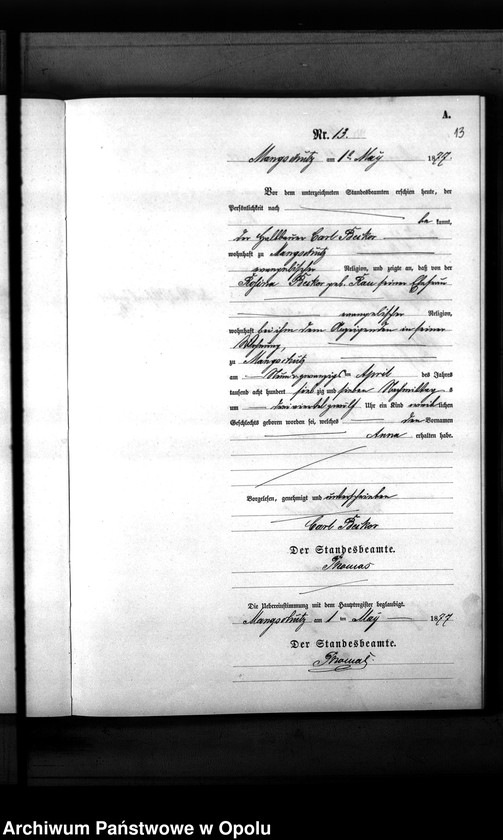 A.
13
Nr. 13.
Mangschütz am 1ten May 1877.
Vor dem unterzeichneten Standesbeamten erschien heute, der
Persönlichkeit nach
be kannt,
der Halbbauer Carl Beikor
wohnhaft zu Mangschütz
evangelischer Religion, und zeigte an, daß von der
Rosina Beikor geb. Kau seiner Ehefrau
evangelischer Religion,
wohnhaft bei ihm dem Anzeigenden in seiner
Wohnung,
zu Mangschütz
am April des Jahres
tausend acht hundert sieb zig und sieben Nachmittag s
um dreiviertel zwölf Uhr ein Kind weib lichen
Geschlechts geboren worden sei, welches den Vornamen
Anna erhalten habe.
Vorgelesen, genehmigt und unterschrieben
Carl Beikor
Der Standesbeamte.
Thomas
Die Uebereinstimmung mit dem Hauptregister beglaubigt.
Mangschütz am 1 ten May 1877
Der Standesbeamte.
Thomas
Archiwum Państwowe w Opolu